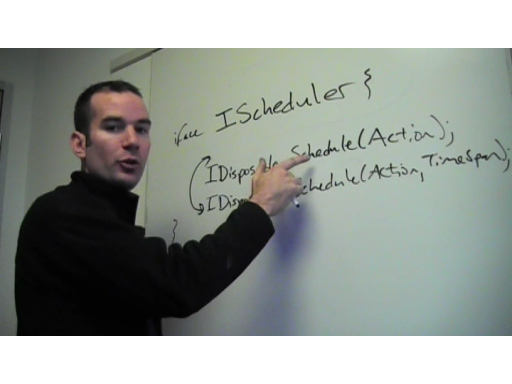 iface IScheduler {
IDisposable Schedule(Action);
Schedule(Action, TimeSpan);
}